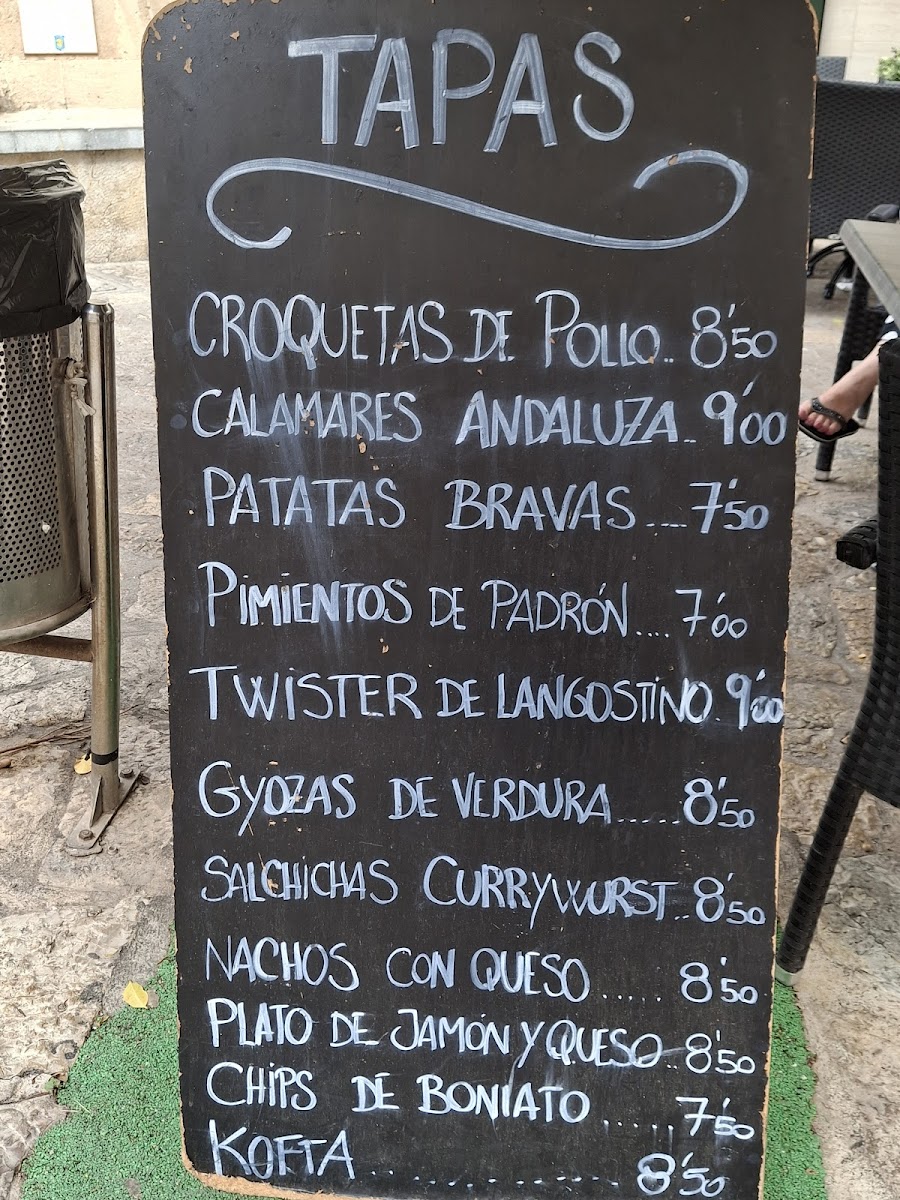 TAPAS
CROQUETAS DE POLLO.. 8'50
CALAMARES ANDALUZA.. 9'00
PATATAS BRAVAS .... 7'50
PIMIENTOS DE PADRÓN.... 7'00
TWISTER DE LANGOSTINO. 9'00
GYOZAS DE VERDURA...... 8'50
SALCHICHAS CURRYWURST.. 8'50
NACHOS CON QUESO ..... 8'50
PLATO DE JAMÓN Y QUESO.. 8'50
CHIPS DE BONIATO ..... 7'50
KOFTA .............. 8'50